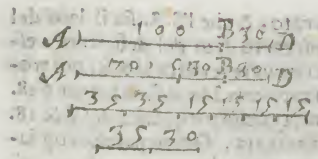 A 100 B 30 D
A 70 C 30 B 30 D
35 35 15 15 15 15
35 30